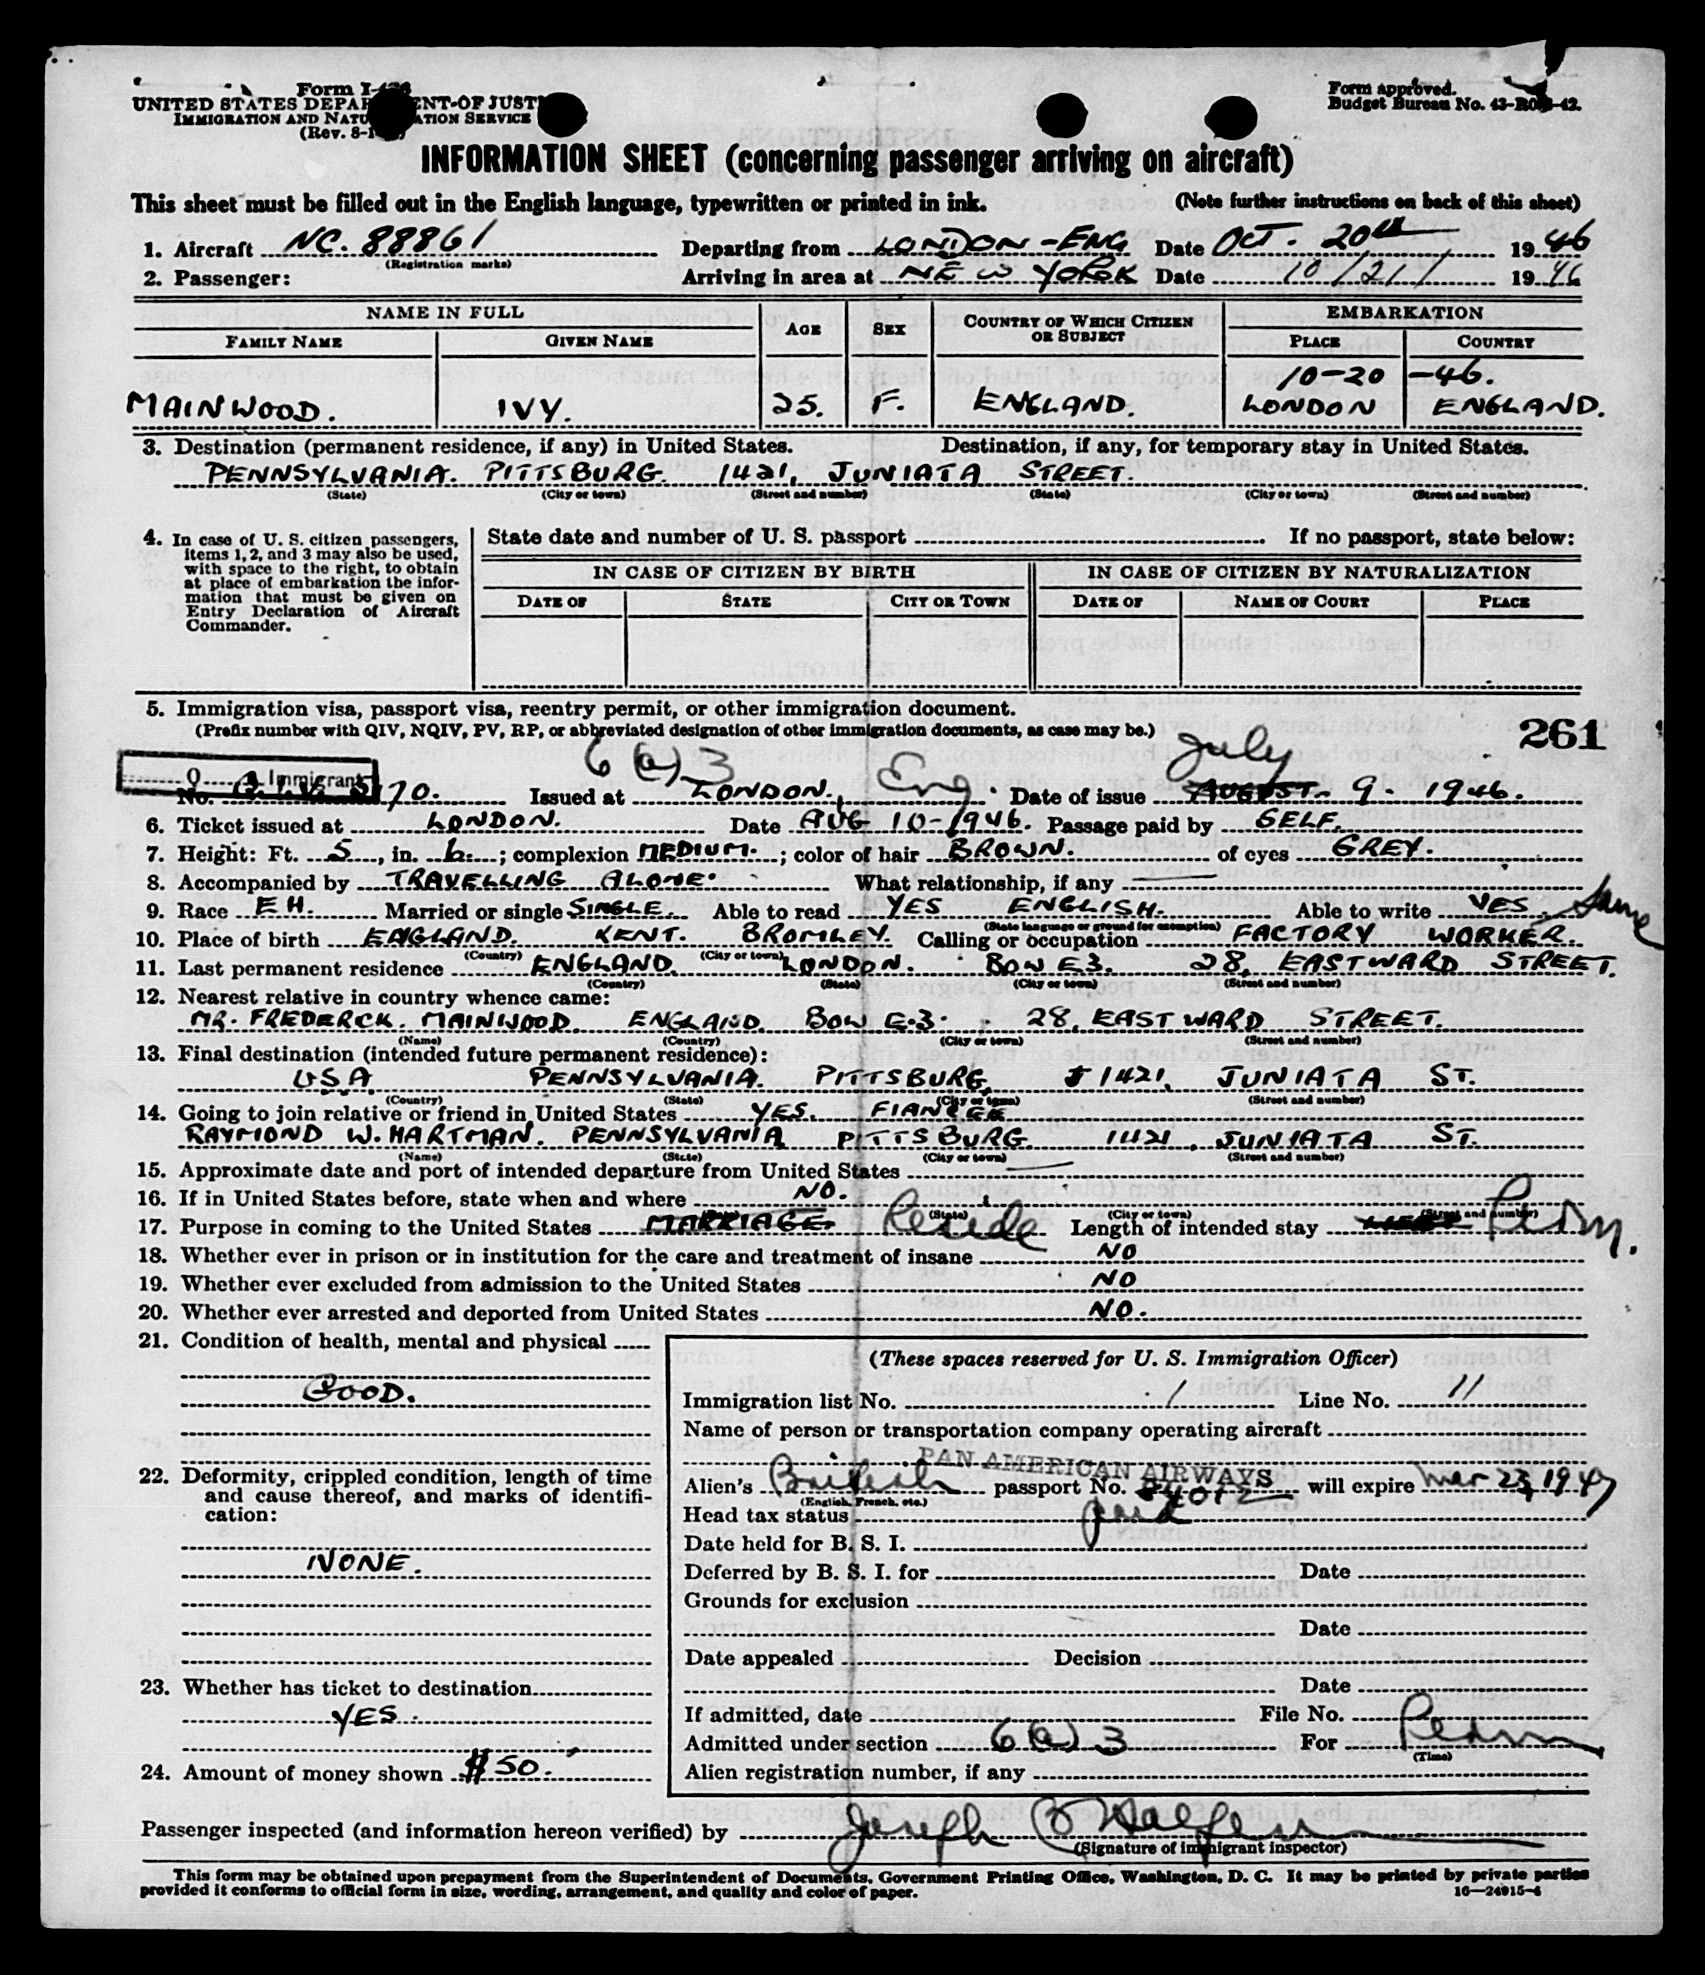 Form I-
UNITED STATES DEPARTMENT OF JUSTICE
IMMIGRATION AND NATURALIZATION SERVICE
(Rev. 8-1
Form approved.
Budget Bureau No. 43-R
INFORMATION SHEET (concerning passenger arriving on aircraft)
This sheet must be filled out in the English language, typewritten or printed in ink. (Note further instructions on back of this sheet)
1. Aircraft NC. 88861 Departing from LONDON - ENG Date OCT. 20th 1946
(Registration marks)
2. Passenger: Arriving in area at NEW YORK Date 10/21/ 1946
NAME IN FULL AGE SEX COUNTRY OF WHICH CITIZEN OR SUBJECT EMBARKATION
FAMILY NAME GIVEN NAME PLACE COUNTRY
10-20 -46.
MAINWOOD. IVY. 25. F. ENGLAND. LONDON ENGLAND.
3. Destination (permanent residence, if any) in United States. Destination, if any, for temporary stay in United States.
PENNSYLVANIA. PITTSBURG. 1421, JUNIATA STREET.
(State) (City or town) (Street and number) (State) (City or town) (Street and number)
4. In case of U. S. citizen passengers,
items 1, 2, and 3 may also be used,
with space to the right, to obtain
at place of embarkation the infor-
mation that must be given on
Entry Declaration of Aircraft
Commander.
State date and number of U. S. passport If no passport, state below:
IN CASE OF CITIZEN BY BIRTH IN CASE OF CITIZEN BY NATURALIZATION
DATE OF STATE CITY OR TOWN DATE OF NAME OF COURT PLACE
5. Immigration visa, passport visa, reentry permit, or other immigration document.
(Prefix number with QIV, NQIV, PV, RP, or abbreviated designation of other immigration documents, as case may be.)
261
6(a)3 July
Q Immigrant
No. Q.I.V. 5170. Issued at LONDON. Eng. Date of issue AUGUST. 9. 1946.
6. Ticket issued at LONDON. Date AUG 10-1946. Passage paid by SELF.
7. Height: Ft. 5, in. 6.; complexion MEDIUM.; color of hair BROWN. of eyes GREY.
8. Accompanied by TRAVELLING ALONE. What relationship, if any —
9. Race EH. Married or single SINGLE. Able to read YES ENGLISH. Able to write YES. Same
(State language or ground for exemption)
10. Place of birth ENGLAND. KENT. BROMLEY. Calling or occupation FACTORY WORKER.
(Country) (City or town)
11. Last permanent residence ENGLAND. LONDON. BOW E3. 28, EASTWARD STREET.
(Country) (State) (City or town) (Street and number)
12. Nearest relative in country whence came:
MR. FREDERCK. MAINWOOD. ENGLAND. BOW E.3. 28, EASTWARD STREET.
(Name) (Country) (City or town) (Street and number)
13. Final destination (intended future permanent residence):
USA PENNSYLVANIA. PITTSBURG, 1421, JUNIATA ST.
(Country) (State) (City or town) (Street and number)
14. Going to join relative or friend in United States YES. FIANCEE
RAYMOND W. HARTMAN. PENNSYLVANIA PITTSBURG. 1421, JUNIATA ST.
(Name) (State) (City or town) (Street and number)
15. Approximate date and port of intended departure from United States —
16. If in United States before, state when and where NO.
(State) (City or town) (Street and number)
17. Purpose in coming to the United States MARRIAGE. Reside Length of intended stay Perm.
18. Whether ever in prison or in institution for the care and treatment of insane NO
19. Whether ever excluded from admission to the United States NO
20. Whether ever arrested and deported from United States NO.
21. Condition of health, mental and physical
GOOD.
22. Deformity, crippled condition, length of time
and cause thereof, and marks of identifi-
cation:
NONE.
23. Whether has ticket to destination
YES.
24. Amount of money shown $50.
(These spaces reserved for U. S. Immigration Officer)
Immigration list No. 1 Line No. 11
Name of person or transportation company operating aircraft
PAN AMERICAN AIRWAYS
Alien's British passport No. will expire Mar 23, 1947
(English, French, etc.)
Head tax status paid
Date held for B. S. I.
Deferred by B. S. I. for Date
Grounds for exclusion
Date
Date appealed Decision
Date
If admitted, date File No.
Admitted under section 6(a)3 For Perm
(Time)
Alien registration number, if any
Passenger inspected (and information hereon verified) by Joseph
(Signature of immigrant inspector)
This form may be obtained upon prepayment from the Superintendent of Documents, Government Printing Office, Washington, D. C. It may be printed by private parties
provided it conforms to official form in size, wording, arrangement, and quality and color of paper. 16—24915-4